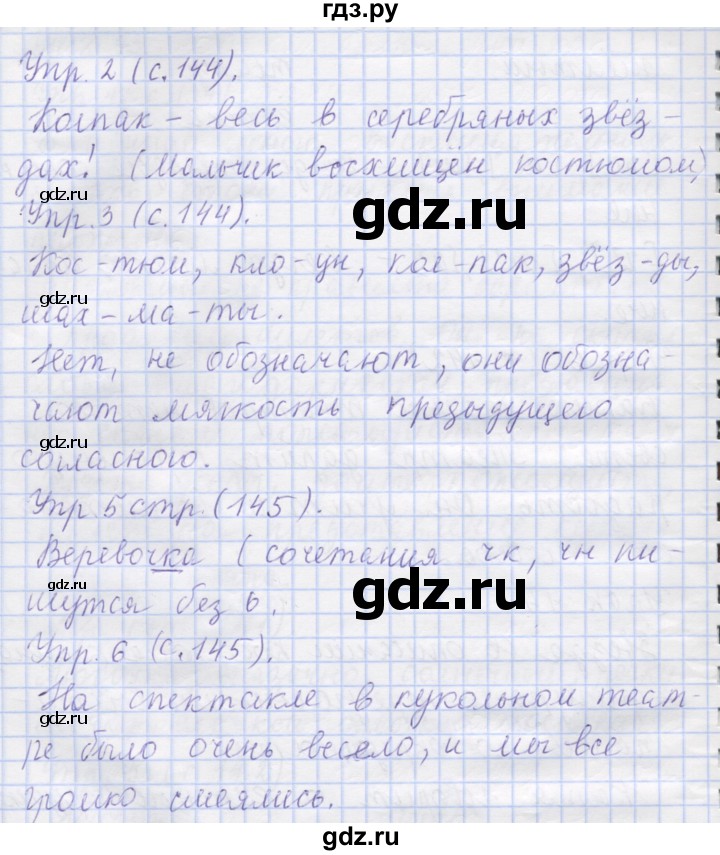 гдз.ру
Упр. 2 (с. 144).
Колпак – весь в серебряных звёз-
дах! (Мальчик восхищён костюмом)
gdz.ru
gdz.ru
Упр. 3 (с. 144).
Кос-тюм, кло-ун, кол-пак, звёз-ды,
gdz.ru
шах-ма-ты.
Нет, не обозначают, они обозна-
gdz.ru
чают мягкость предыдущего
согласного.
Упр 5 стр. (145).
gdz.ru
Веревочка (сочетания чк, чн пи-
gdz.ru
gdz.ru
шутся без ь.
Упр. 6 (с. 145).
На спектакле в кукольном теат-
gdz.ru
ре было очень весело, и мы все
громко смеялись.
gdz.ru
gdz.ru